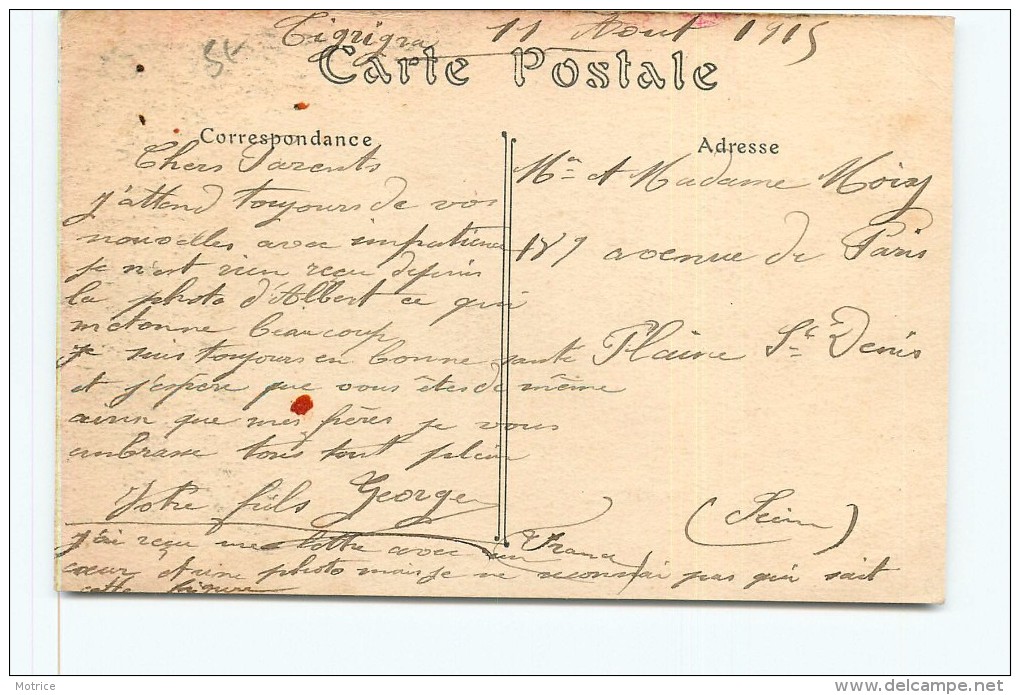 Tigrigra 11 Aout 1915
Carte Postale
Correspondance
Chers Parents
j'attend toujours de vos
nouvelles avec impatience
je n'est rien reçu depuis
la photo d'Albert ce qui
m'etonne beaucoup
je suis toujours en bonne sante
et j'espere que vous êtes de même
ainsi que mes frères je vous
embrasse tous tout plein
Votre fils Georges
j'ai reçu une lettre avec un Franc
cœur et une photo mais je ne reconnai pas qui sait
cette figure
Adresse
Mr et Madame Moisy
187 avenue de Paris
Plaine St Denis
(Seine)
Motrice
delcampe.net